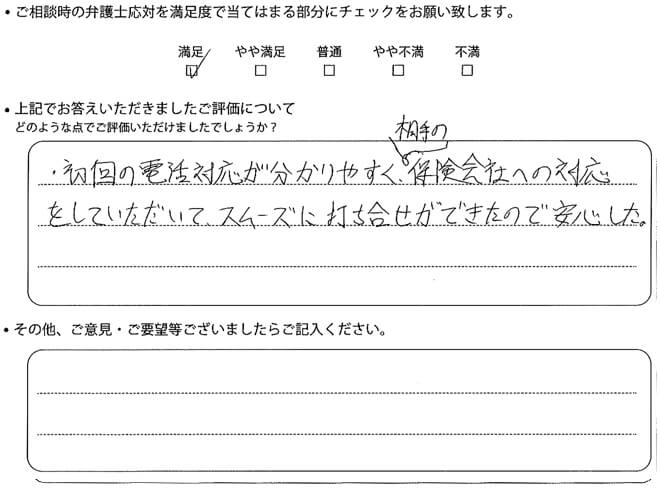 • ご相談時の弁護士応対を満足度で当てはまる部分にチェックをお願い致します。
満足 やや満足 普通 やや不満 不満
• 上記でお答えいただきましたご評価について
どのような点でご評価いただけましたでしょうか？
相手の
・初回の電話対応が分かりやすく、保険会社への対応
をしていただいて、スムーズに打ち合せができたので安心した。
• その他、ご意見・ご要望等ございましたらご記入ください。